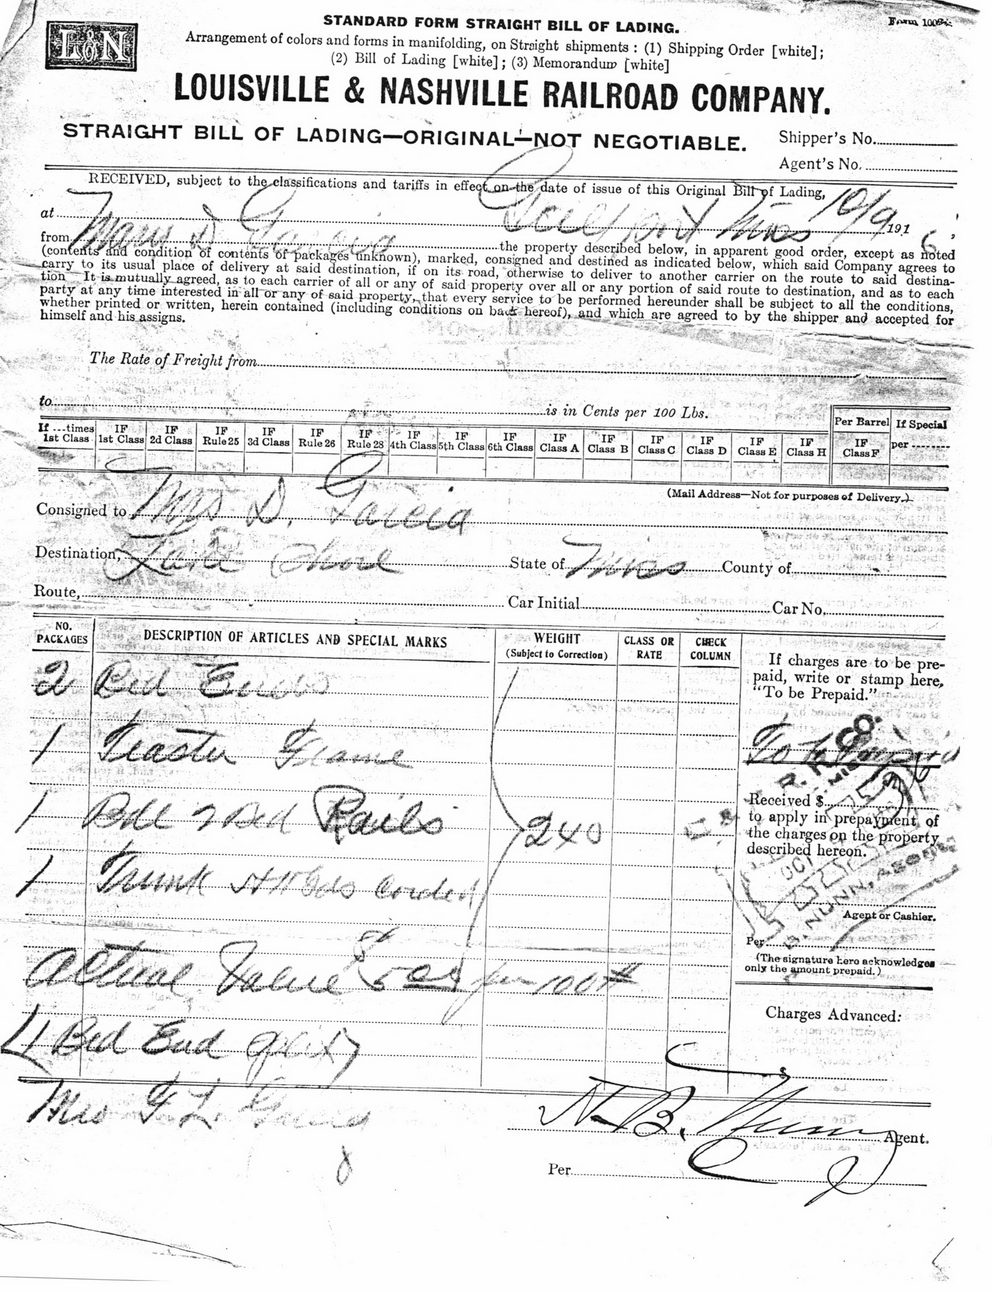 L&N
STANDARD FORM STRAIGHT BILL OF LADING.
Arrangement of colors and forms in manifolding, on Straight shipments : (1) Shipping Order [white] ;
(2) Bill of Lading [white] ; (3) Memorandum [white]
LOUISVILLE & NASHVILLE RAILROAD COMPANY.
STRAIGHT BILL OF LADING—ORIGINAL—NOT NEGOTIABLE.
Shipper's No.
Agent's No.
RECEIVED, subject to the classifications and tariffs in effect on the date of issue of this Original Bill of Lading,
at Gulfport Miss 10/9 1916,
from Mrs D Garcia the property described below, in apparent good order, except as noted
(contents and condition of contents of packages unknown), marked, consigned and destined as indicated below, which said Company agrees to
carry to its usual place of delivery at said destination, if on its road, otherwise to deliver to another carrier on the route to said destina-
tion. It is mutually agreed, as to each carrier of all or any of said property over all or any portion of said route to destination, and as to each
party at any time interested in all or any of said property, that every service to be performed hereunder shall be subject to all the conditions,
whether printed or written, herein contained (including conditions on back hereof), and which are agreed to by the shipper and accepted for
himself and his assigns.
The Rate of Freight from
to is in Cents per 100 Lbs.
If ...times 1st Class IF 1st Class IF 2d Class IF Rule 25 IF 3d Class IF Rule 26 IF Rule 28 IF 4th Class IF 5th Class IF 6th Class IF Class A IF Class B IF Class C IF Class D IF Class E IF Class H Per Barrel IF Class F If Special per
(Mail Address—Not for purposes of Delivery.)
Consigned to Mrs D. Garcia
Destination, Lake Shore State of Miss County of
Route, Car Initial Car No.
NO. PACKAGES DESCRIPTION OF ARTICLES AND SPECIAL MARKS WEIGHT (Subject to Correction) CLASS OR RATE CHECK COLUMN
2 Bed Ends
1 Teaster Frame
1 Bdl 2 Bed Rails 240
1 Trunk H H Gds Corded
Actual Value 5 00 per 100 #
Bed End
Mrs
If charges are to be pre-
paid, write or stamp here,
"To be Prepaid."
To be Prepaid
R. R. CO.
MISS
OCT
NUNN, AGENT
Received $
to apply in prepayment of
the charges on the property
described hereon.
Agent or Cashier.
Per
(The signature here acknowledges
only the amount prepaid.)
Charges Advanced:
$
N. B. Nunn Agent.
Per